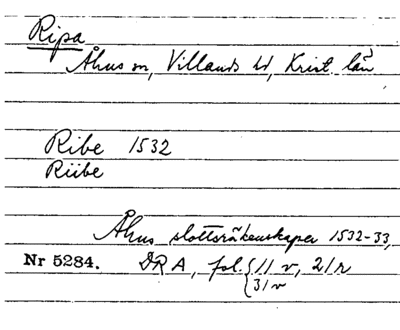 Ripa
Åhus sn, Villands hd, Krist. län
Ribe 1532
Riibe
Åhus slottsräkenskaper 1532-33,
Nr 5284. DRA, fol. { 11 v, 21 r
31 v